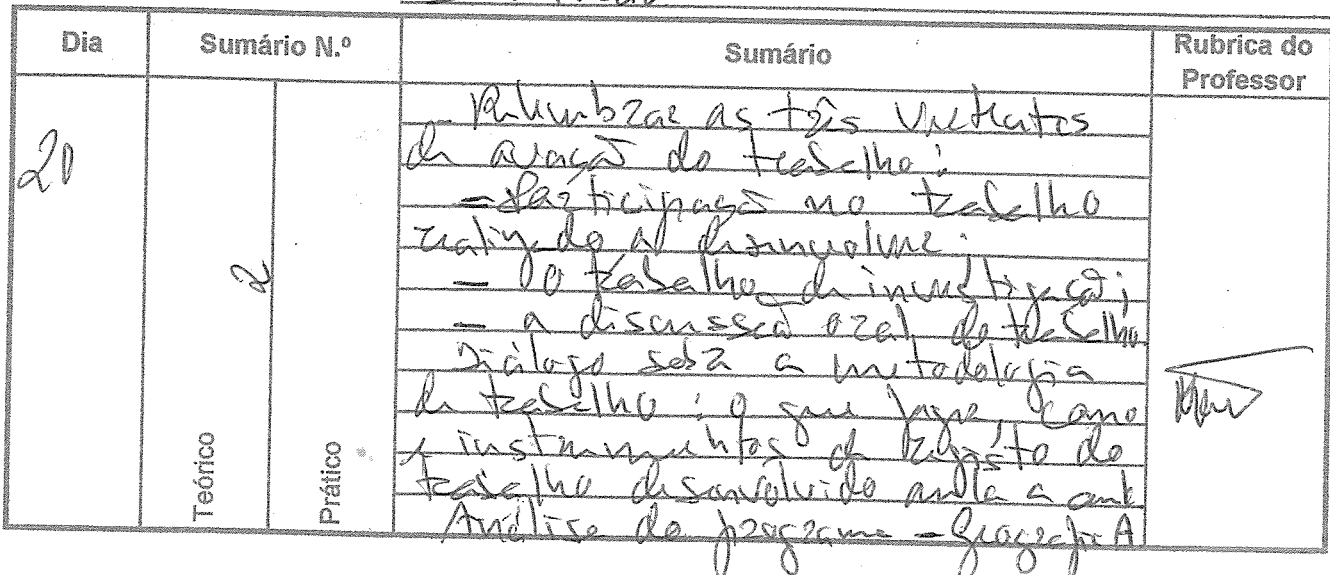 Dia Sumário N.º Sumário Rubrica do Professor
20
2
Teórico
Prático
- Relembrar as três vertentes
de avaação do trabalho:
- Participação no trabalho
realizado a desenvolver.
- O trabalho de investigação;
- a discussão oral do trabalho
Diálogo sobre a metodologia
de trabalho: o que fazer, como
e instrumentos de registo do
trabalho desenvolvido aula a aula
Análise do programa - Geografia A